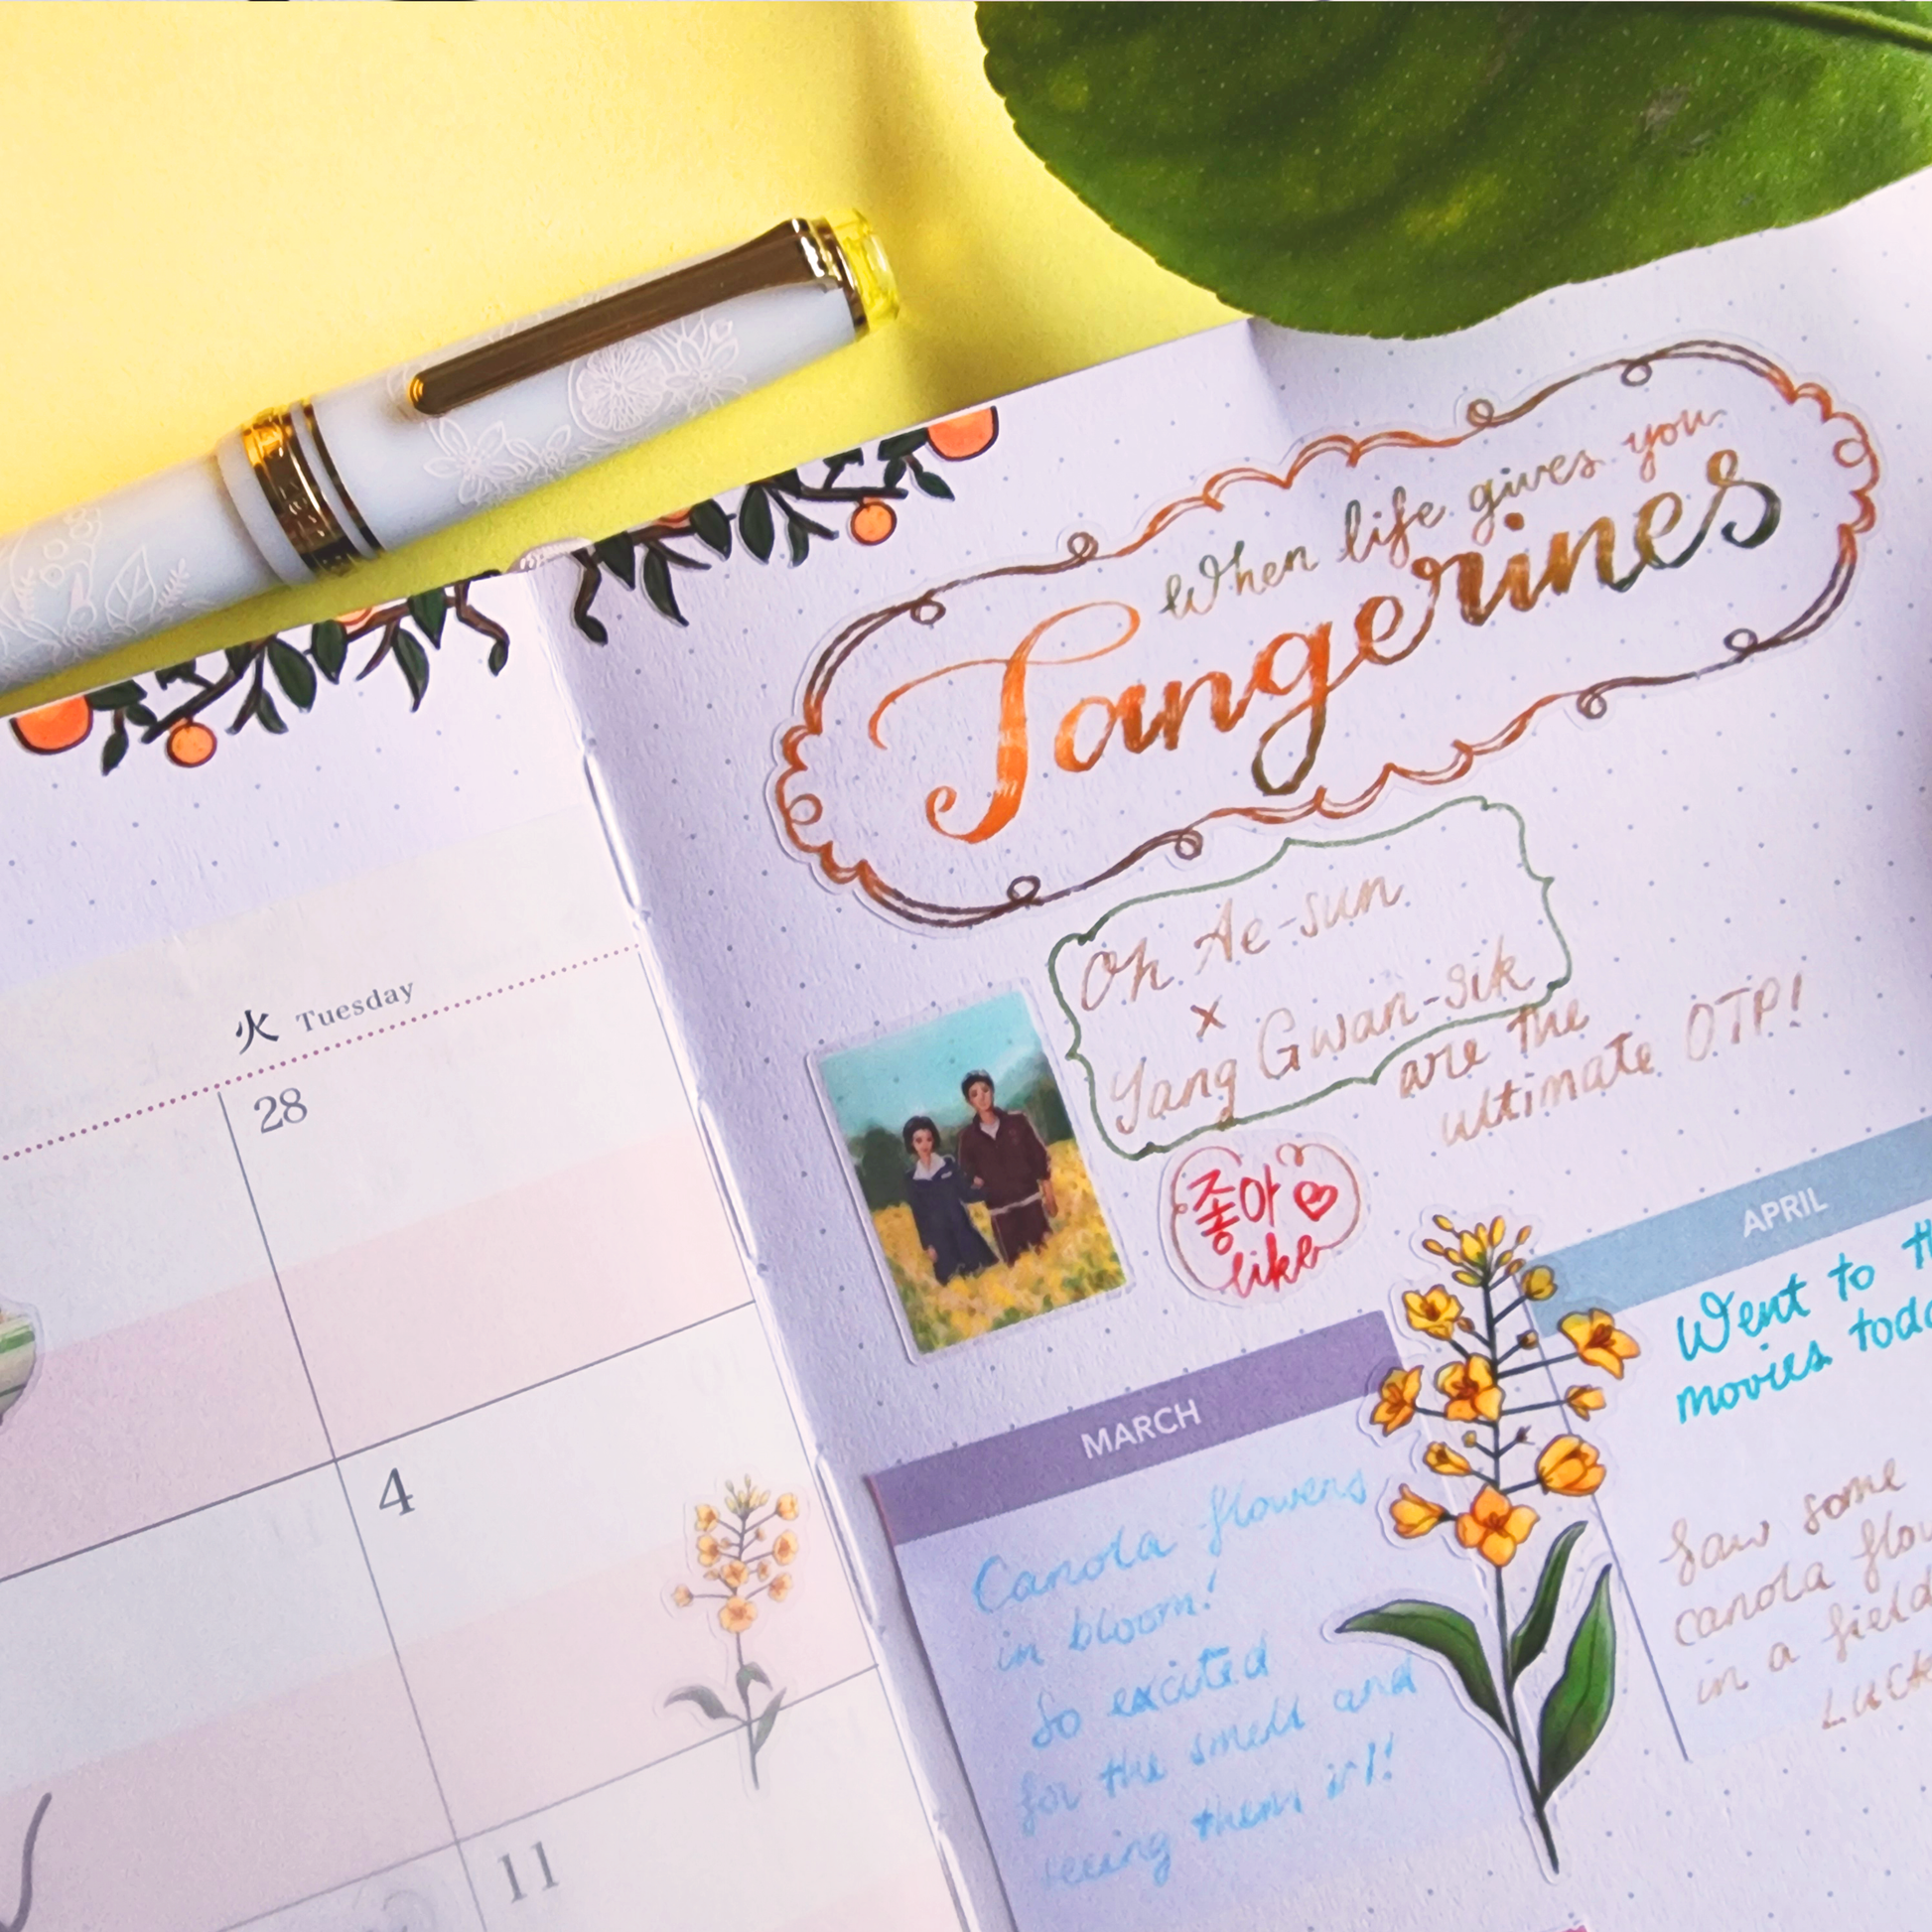 When life gives you
Tangerines
Oh Ae-sun
x
Yang Gwan-sik
are the
ultimate OTP!
좋아
like
火 Tuesday
28
4
11
MARCH
Canola flowers
in bloom!
So excited
for the smell and
seeing them irl!
APRIL
Went to
movies
Saw some
canola
in a